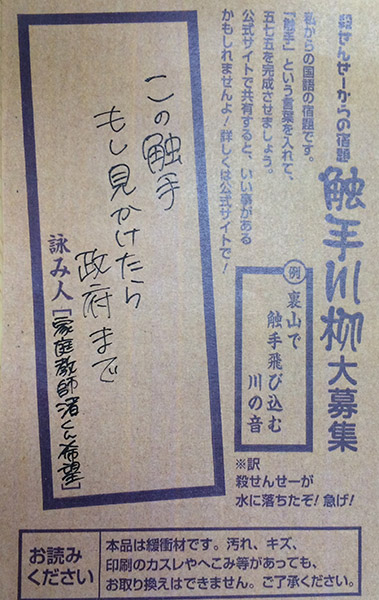 殺せんせーからの宿題
触手川柳大募集
私からの国語の宿題です。
「触手」という言葉を入れて、
五七五を完成させましょう。
公式サイトで共有すると、いい事がある
かもしれませんよ!詳しくは公式サイトで!
例
裏山で
触手飛び込む
川の音
※訳
殺せんせーが
水に落ちたぞ!急げ!
この触手
もし見かけたら
政府まで
詠み人[家庭教師渚くん希望]
お読み
ください
本品は緩衝材です。汚れ、キズ、
印刷のカスレやへこみ等があっても、
お取り換えはできません。ご了承ください。